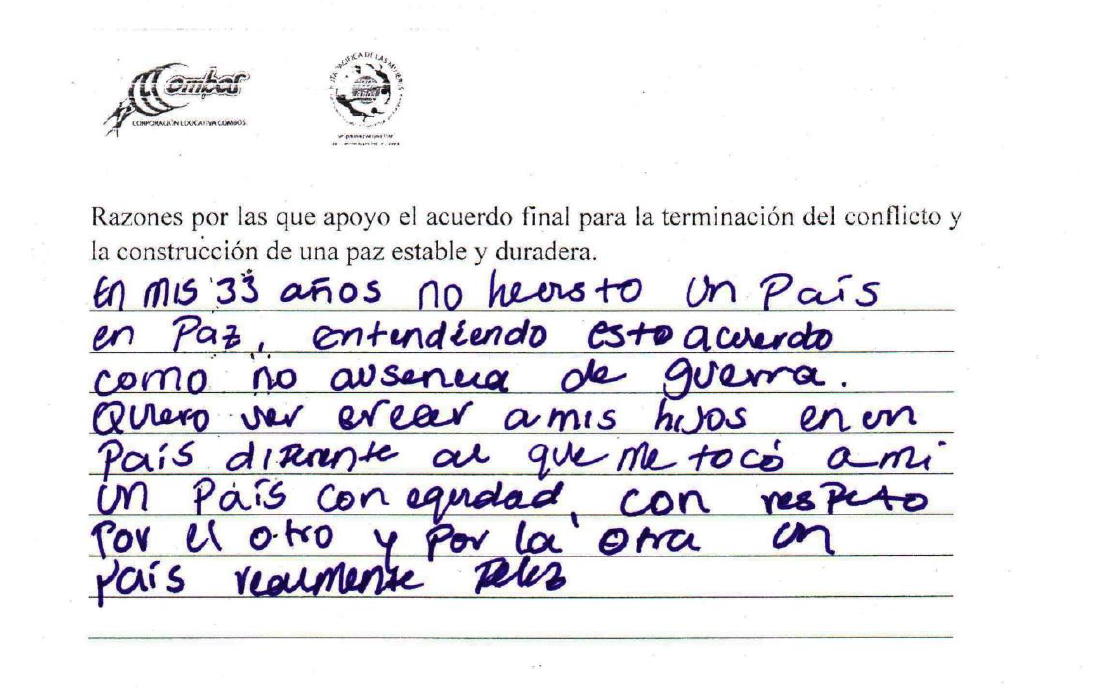 Combos
CORPORACIÓN EDUCATIVA COMBOS
RUTA PACÍFICA DE LAS MUJERES
años
Razones por las que apoyo el acuerdo final para la terminación del conflicto y
la construcción de una paz estable y duradera.
En mis 33 años no he visto un País
en Paz, entendiendo esto acuerdo
como no ausencia de guerra.
Quiero ver crecer a mis hijos en un
País diferente al que me tocó a mi
un País con equidad, con respeto
Por el otro y por la otra un
país realmente feliz